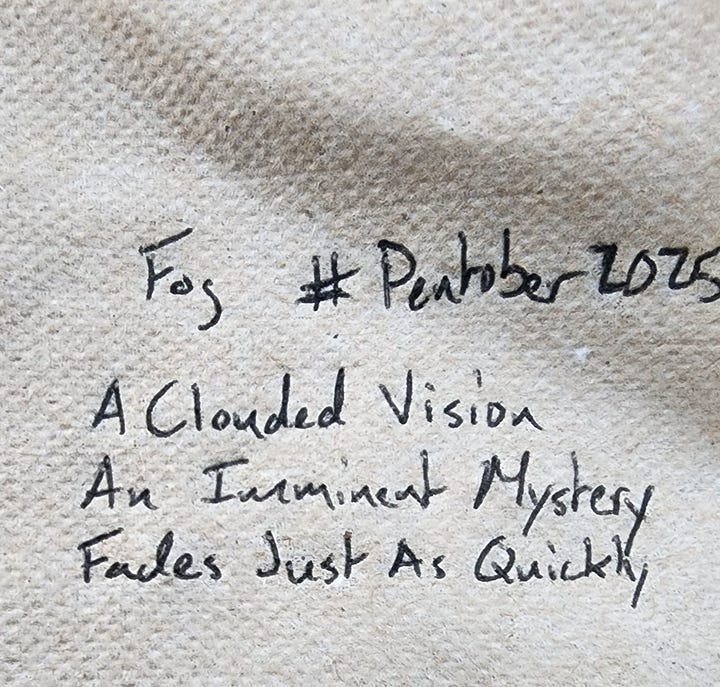 Fog # Pentober 2025
A Clouded Vision
An Imminent Mystery
Fades Just As Quickly